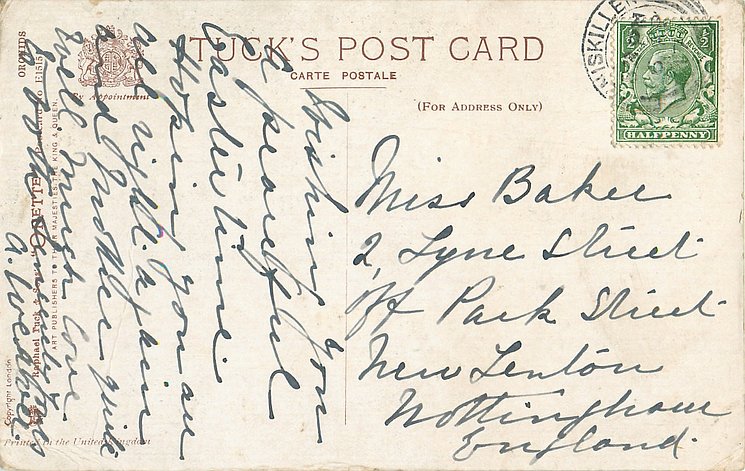 TUCK'S POST CARD
CARTE POSTALE
(FOR ADDRESS ONLY)
By Appointment
NISKILLE
HALFPENNY
Wishing you
a peaceful
Eastertime.
Hoping you are
all right again
and Mother quite
well Much love
to
A. Weaver.
Miss Baker
2, Lyne Street
off Park Street
New Lenton
Nottingham
England.
ORCHIDS
Raphael Tuck & Sons' "OILETTE" Postcard No E1515
ART PUBLISHERS TO THEIR MAJESTIES THE KING & QUEEN.
Copyright London
Printed in the United Kingdom